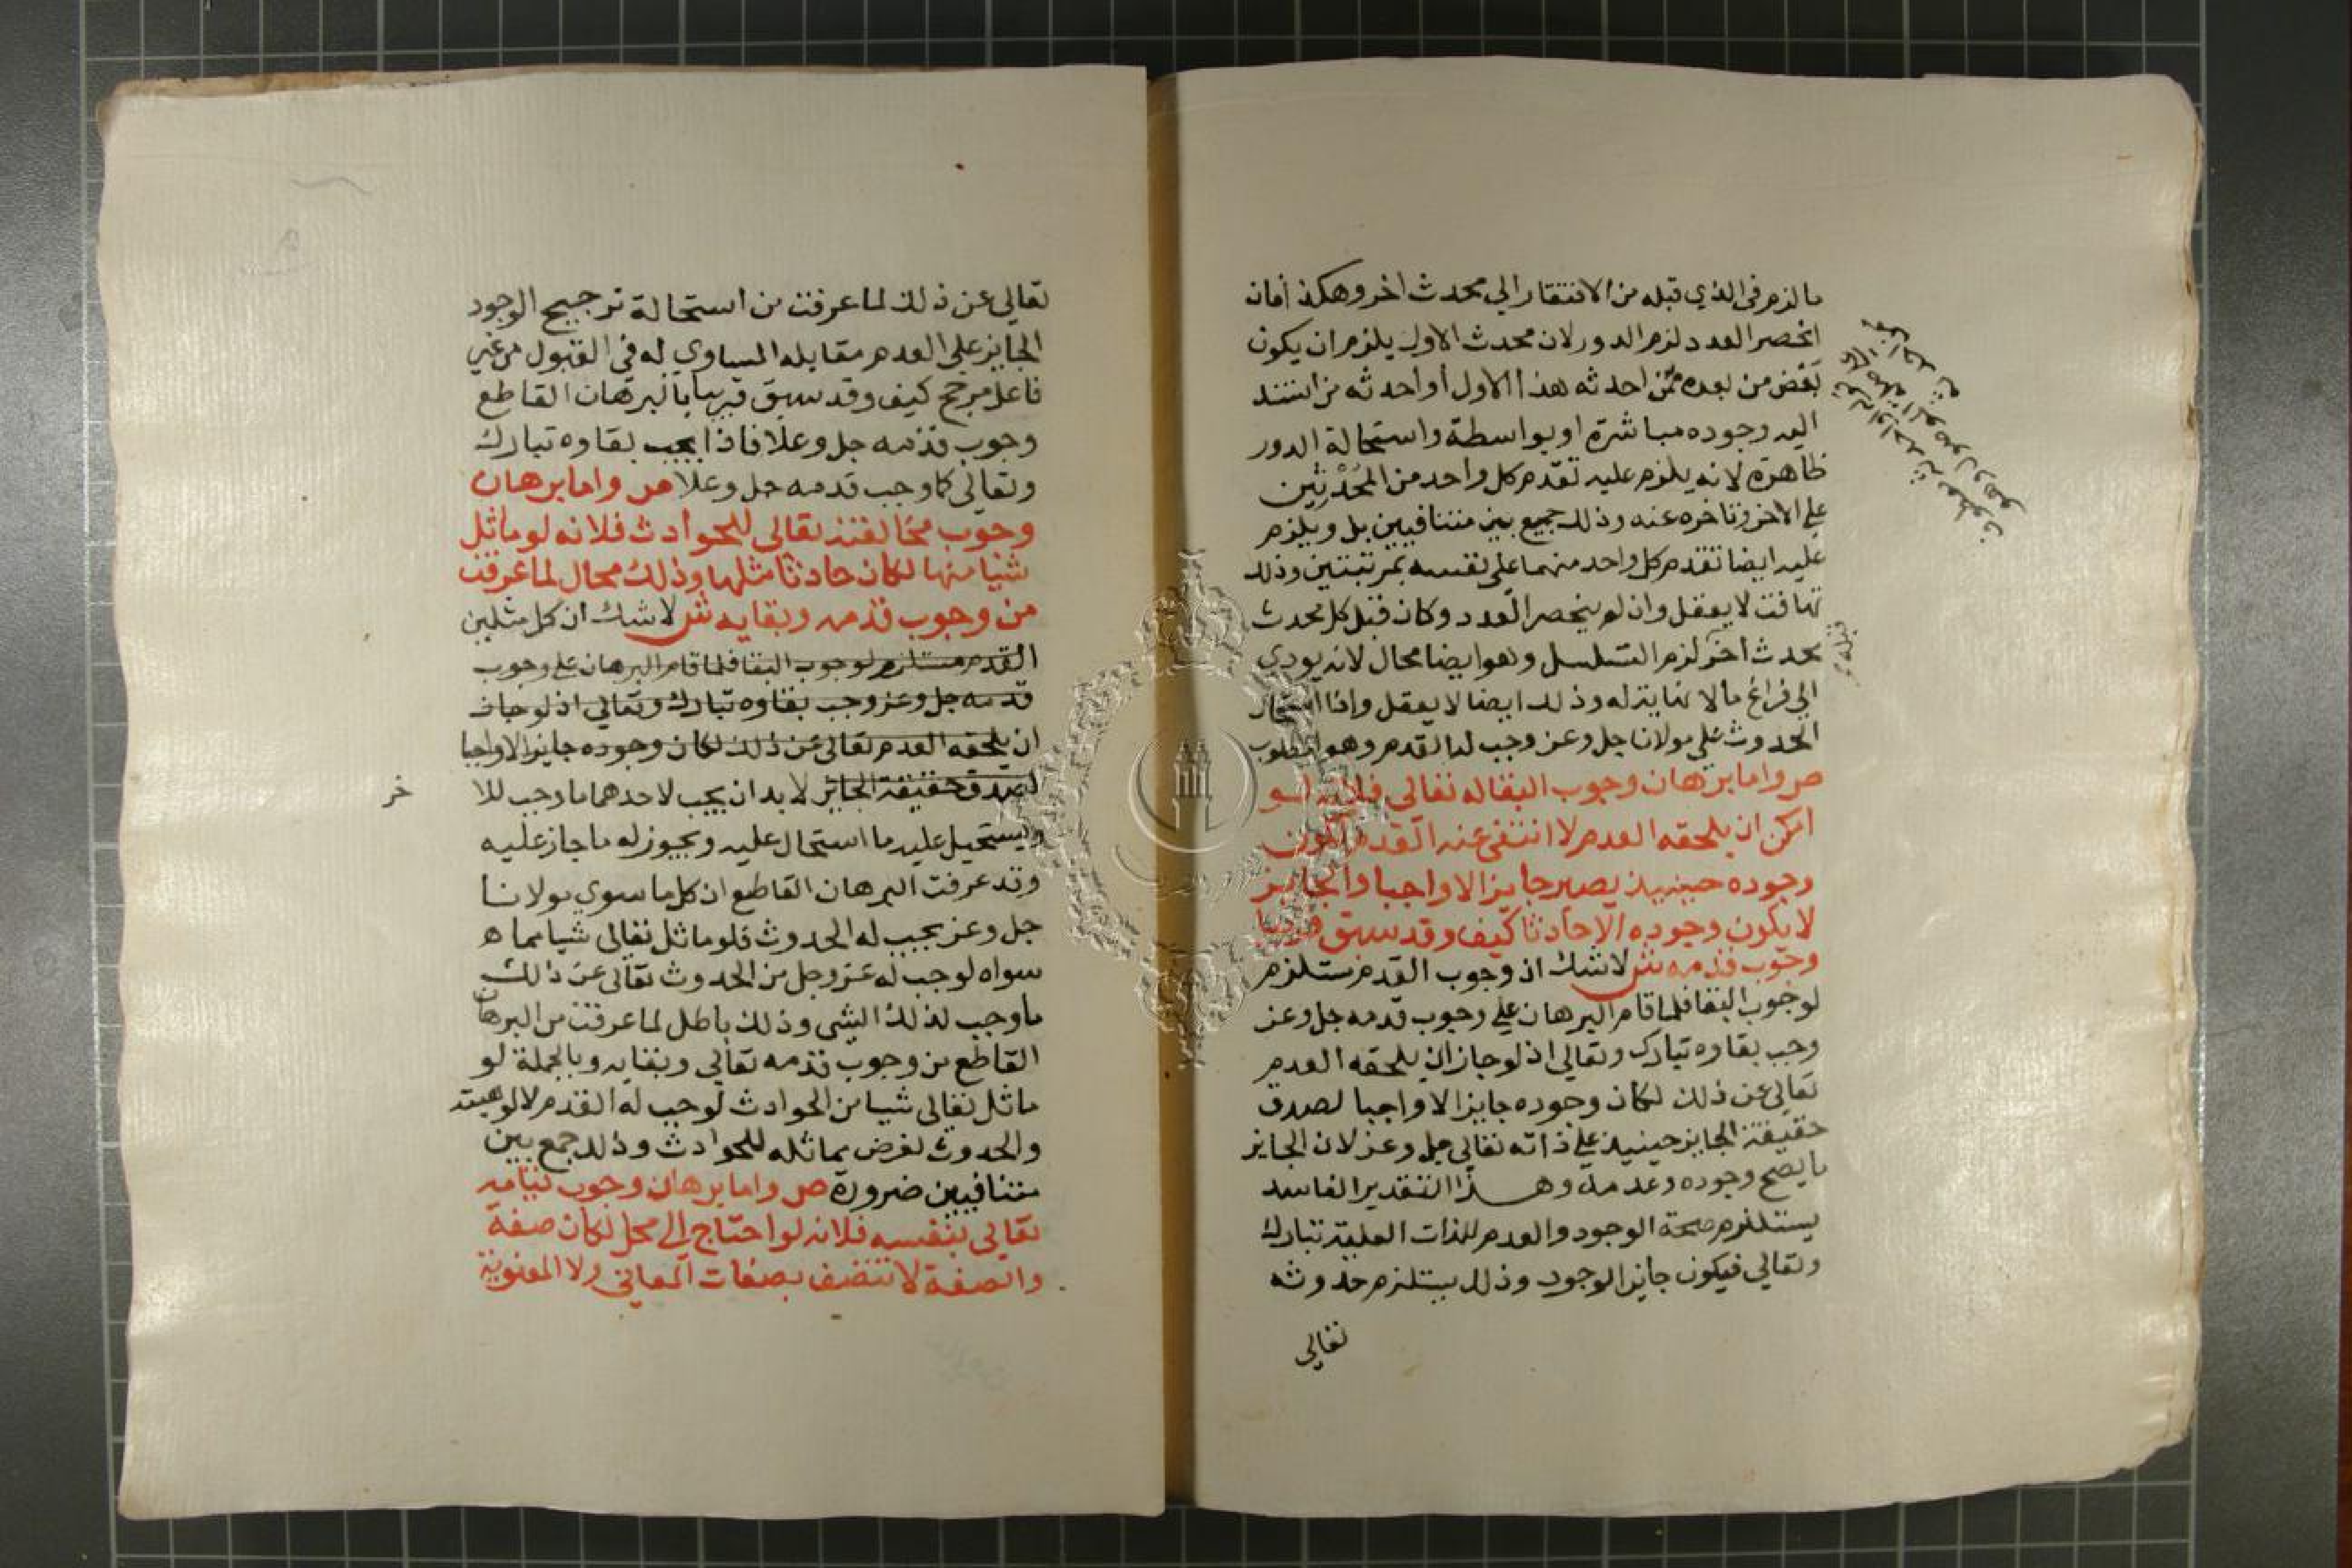 ما لزم فى الذي قبله من الافتقار الي محدث اخر وهكذا فان
انحصر العدد لزم الدور لان محدث الاول يلزم ان يكون
بعض من بعده ممن احدثه هذا الاول أو احدثه من استند
اليه وجوده مباشرة او بواسطة واستحالة الدور
ظاهرة لانه يلزم عليه تقدم كل واحد من المُحْدِثَين
علي الاخر وتاخره عنه وذلك جميع بين متنافيين بل ويلزم
عليه ايضا تقدم كل واحد منهما علي نفسه بمرتبتين وذلك
تهافت لا يعقل وان لم ينحصر العدد وكان قبل كل محدث
محدث اخر لزم التسلسل وهو ايضا محال لانه يودي
الي فراغ ما لا نهاية له وذلك ايضا لا يعقل واذا استحال
الحدوث علي مولانا جل وعز وجب له القدم وهو المطلوب
ص واما برهان وجوب البقا له تعالي فلانه لو
امكن ان يلحقه العدم لا انتفى عنه القدم لكون
وجوده حينيذ يصير جايزا لا واجبا والجايز
لا يكون وجوده الا حادثا كيف وقد سبق قريبا
وجوب قدمه ش لا شك ان وجوب القدم مستلزم
لوجوب البقا فلما قام البرهان علي وجوب قدمه جل وعز
وجب بقاوه تبارك وتعالي اذ لو جاز ان يلحقه العدم
تعالي عن ذلك لكان وجوده جايزا لا واجبا لصدق
حقيقة الجايز حينيذ علي ذاته تعالي جل وعز لان الجايز
ما يصح وجوده وعدمه وهذا التقدير الفاسد
يستلزم صحة الوجود والعدم للذات العلية تبارك
وتعالي فيكون جايز الوجود وذلك يستلزم حدوثه
تعالي
تعالي عن ذلك لما عرفت من استحالة ترجيح الوجود
الجايز علي العدم مقابله المساوي له في القبول من غير
فاعل مرجح كيف وقد سبق قريبا بالبرهان القاطع
وجوب قدمه جل وعلا فاذا يجب بقاوه تبارك
وتعالي كما وجب قدمه جل وعلا ص واما برهان
وجوب مخالفته تعالي للحوادث فلانه لو ماثل
شيا منها لكان حادثا مثلها وذلك محال لما عرفت
من وجوب قدمه وبقايه ش لا شك ان كل مثلين
القدم مستلزم لوجوب البقا فلما قام البرهان علي وجوب
قدمه جل وعز وجب بقاوه تبارك وتعالي اذ لو جاز
ان يلحقه العدم تعالي عن ذلك لكان وجوده جايزا لا واجبا
لصدق حقيقة الجايز لا بد ان يجب لاحدهما ما وجب للا
خر
ويستحيل عليه ما استحال عليه ويجوز له ما جاز عليه
وقد عرفت البرهان القاطع ان كل ما سوي مولانا
جل وعز يجب له الحدوث فلو ماثل تعالي شيا مما
سواه لوجب له عز وجل من الحدوث تعالي عن ذلك
ما وجب لذلك الشي وذلك باطل لما عرفت من البرهان
القاطع من وجوب قدمه تعالي وبقايه وبالجملة لو
ماثل تعالي شيا من الحوادث لوجب له القدم لالوهيته
والحدوث لفرض مماثله للحوادث وذلك جمع بين
متنافيين ضرورة ص واما برهان وجوب قيامه
تعالي بنفسه فلانه لو احتاج الي محل لكان صفة
والصفة لا تتصف بصفات المعاني ولا المعنوية